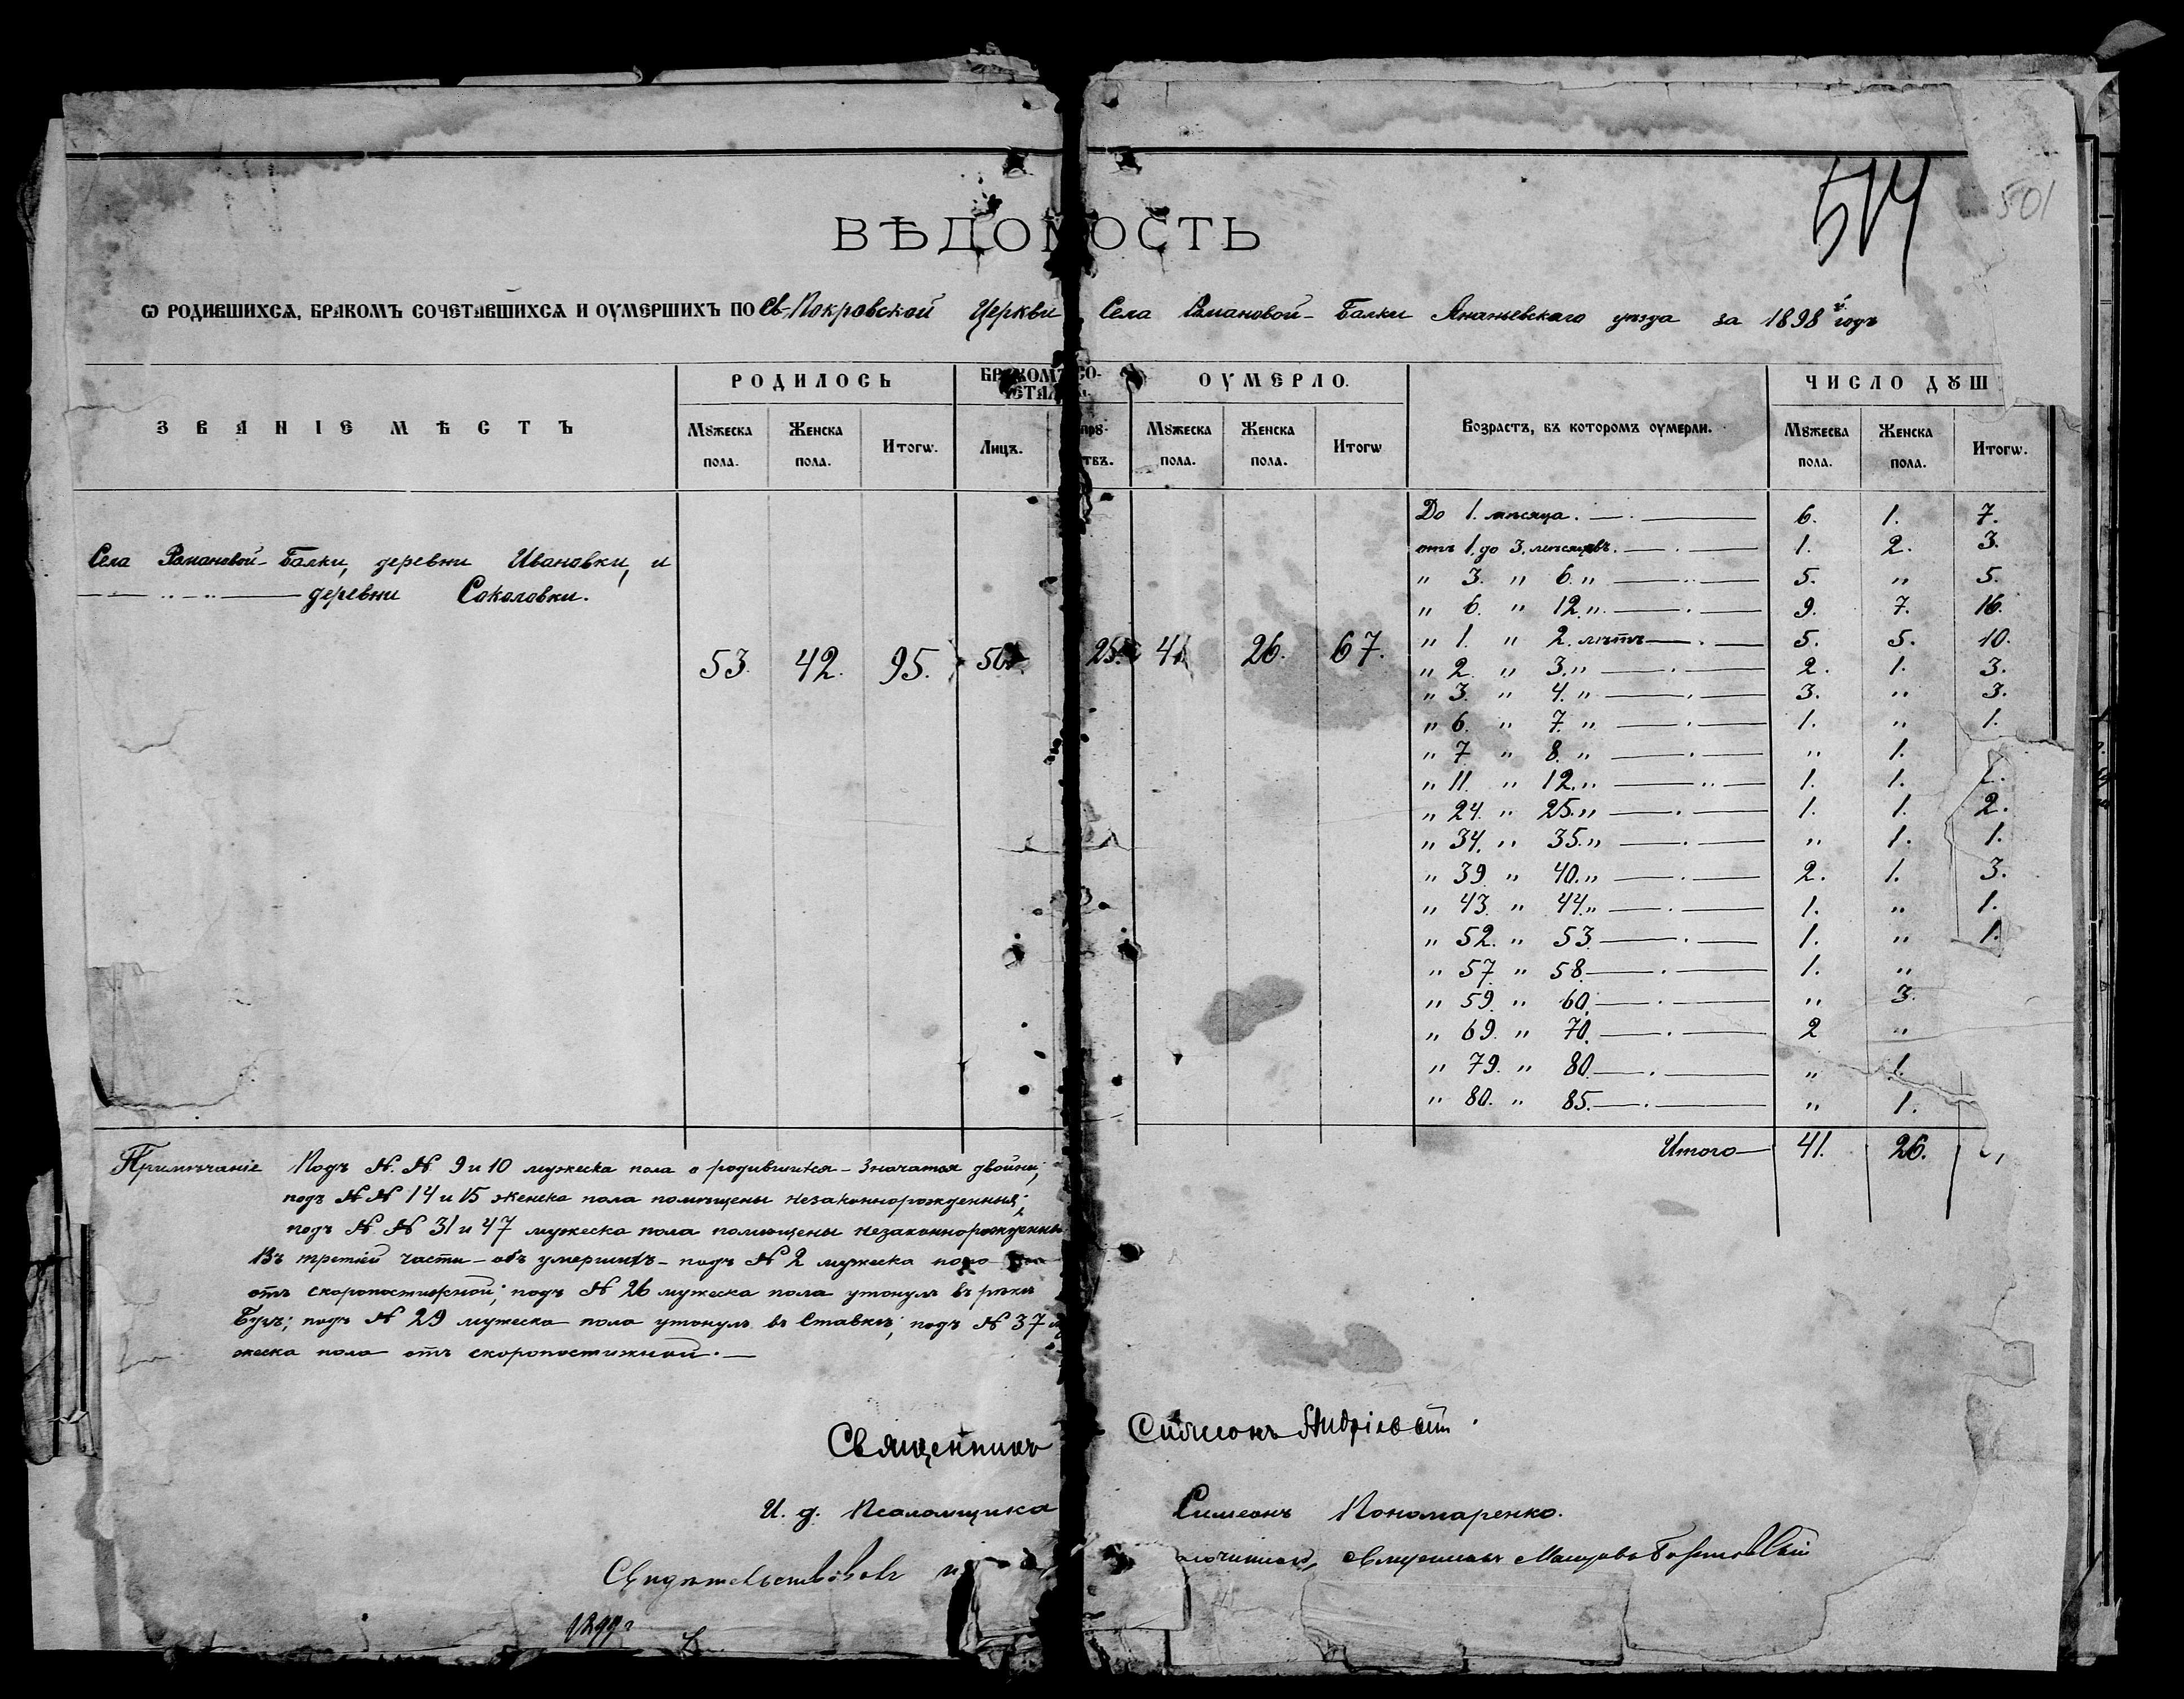 514
501
ВѢДОМОСТЬ
Ѡ РОДИВШИХСѦ, БРАКОМЪ СОЧЕТАВШИХСѦ И ОУМЕРШИХЪ ПО Св-Покровской Церкви Села Романовой-Балки Ананьевскаго уѣзда за 1898 й годъ
ЗВАНІЕ МѢСТЪ
РОДИЛОСЬ
БРАКОМЪ СО-
ЧЕТАЛ
ОУМЕРЛО.
Возрастъ, въ которомъ оумерли.
ЧИСЛО ДꙊШ
Мꙋжеска пола.
Женска пола.
Итогѡ.
Лицъ.
прꙋ-
твъ.
Мꙋжеска пола.
Женска пола.
Итогѡ
Мꙋжесва пола.
Женска пола.
Итогѡ.
Села Романовой-Балки, деревни Ивановки, и
деревни Соколовки.
53. 42. 95. 50. 25. 41 26. 67.
До 1. мѣсяца. 6. 1. 7.
отъ 1. до 3. мѣсяцевъ. 1. 2. 3.
" 3. " 6. " 5. " 5.
" 6. " 12. " 9. 7. 16.
" 1. " 2. лѣтъ 5. 5. 10.
" 2. " 3. " 2. 1. 3.
" 3. " 4. " 3. " 3.
" 6. " 7. " 1. " 1.
" 7 " 8. " " 1.
" 11. " 12. " 1. 1.
" 24. " 25. " 1. 1. 2.
" 34. " 35. " " 1. 1.
" 39. " 40. " 2. 1. 3.
" 43. " 44. " 1. " 1.
" 52. " 53. 1. " 1.
" 57. " 58. 1. "
" 59. " 60. " 3.
" 69. " 70. 2 "
" 79. " 80. " 1.
" 80. " 85. " 1.
Итого 41. 26.
Примѣчаніе Подъ N. N. 9 и 10 мужеска пола о родившихся - значатся двойни;
подъ N N 14 и 15 женска пола помѣщены незаконнорожденныя;
подъ N N 31 и 47 мужеска пола помѣщены незаконнорожденны
Въ третьей части - объ умершихъ - подъ N 2 мужеска пола
отъ скоропостижной; подъ N 26 мужеска пола утонулъ въ рѣкѣ
Бугъ; подъ N 29 мужеска пола утонулъ въ Ставкѣ; подъ N 37 му
жеска пола отъ скоропостижной.
Священникъ Симеонъ Андріевскій.
И. д. Псаломщика Симеонъ Пономаренко.
Свидѣтельствовалъ священникъ
1899 г